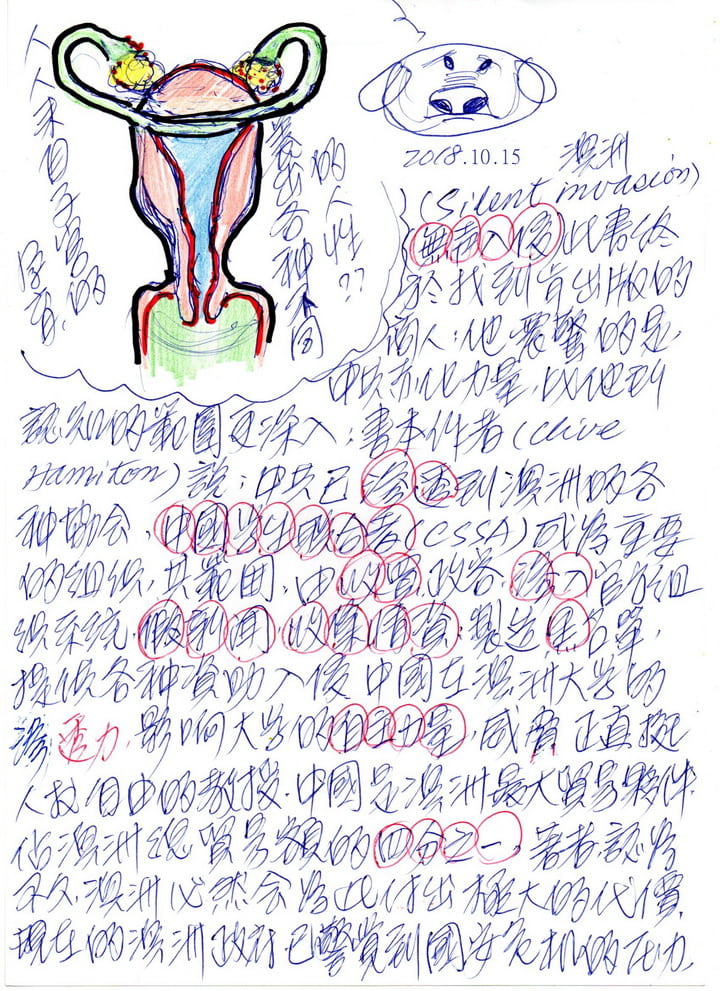 人人來自子宮的
孕育,的
養出各种不同
的人性??
2018.10.15 澳洲
(Silent invasión)
無声入侵 此書終
於找到肯出版的
商人;他震驚的是
中共赤化力量,以他到
認知的範圍更深入;書本作者(Clive
Hamilton)說;中共已滲透到澳洲的各
种協会,中國学生联合会(CSSA)成為主要
的組織,其範圍,由收買,政客,滲入官方組
織系統,假新聞,收集情資;製造黑名單,
提供各种資助入侵中國在澳洲大学的
滲透力,影响大学的自主力量,威脅正直挺
人权自由的教授.中國是澳洲最大貿易夥伴,
佔澳洲總貿易額的四分之一,著者,認為
不久,澳洲必然会為此付出極大的代價,
現在的澳洲政府已警覺到國安危机的压力.